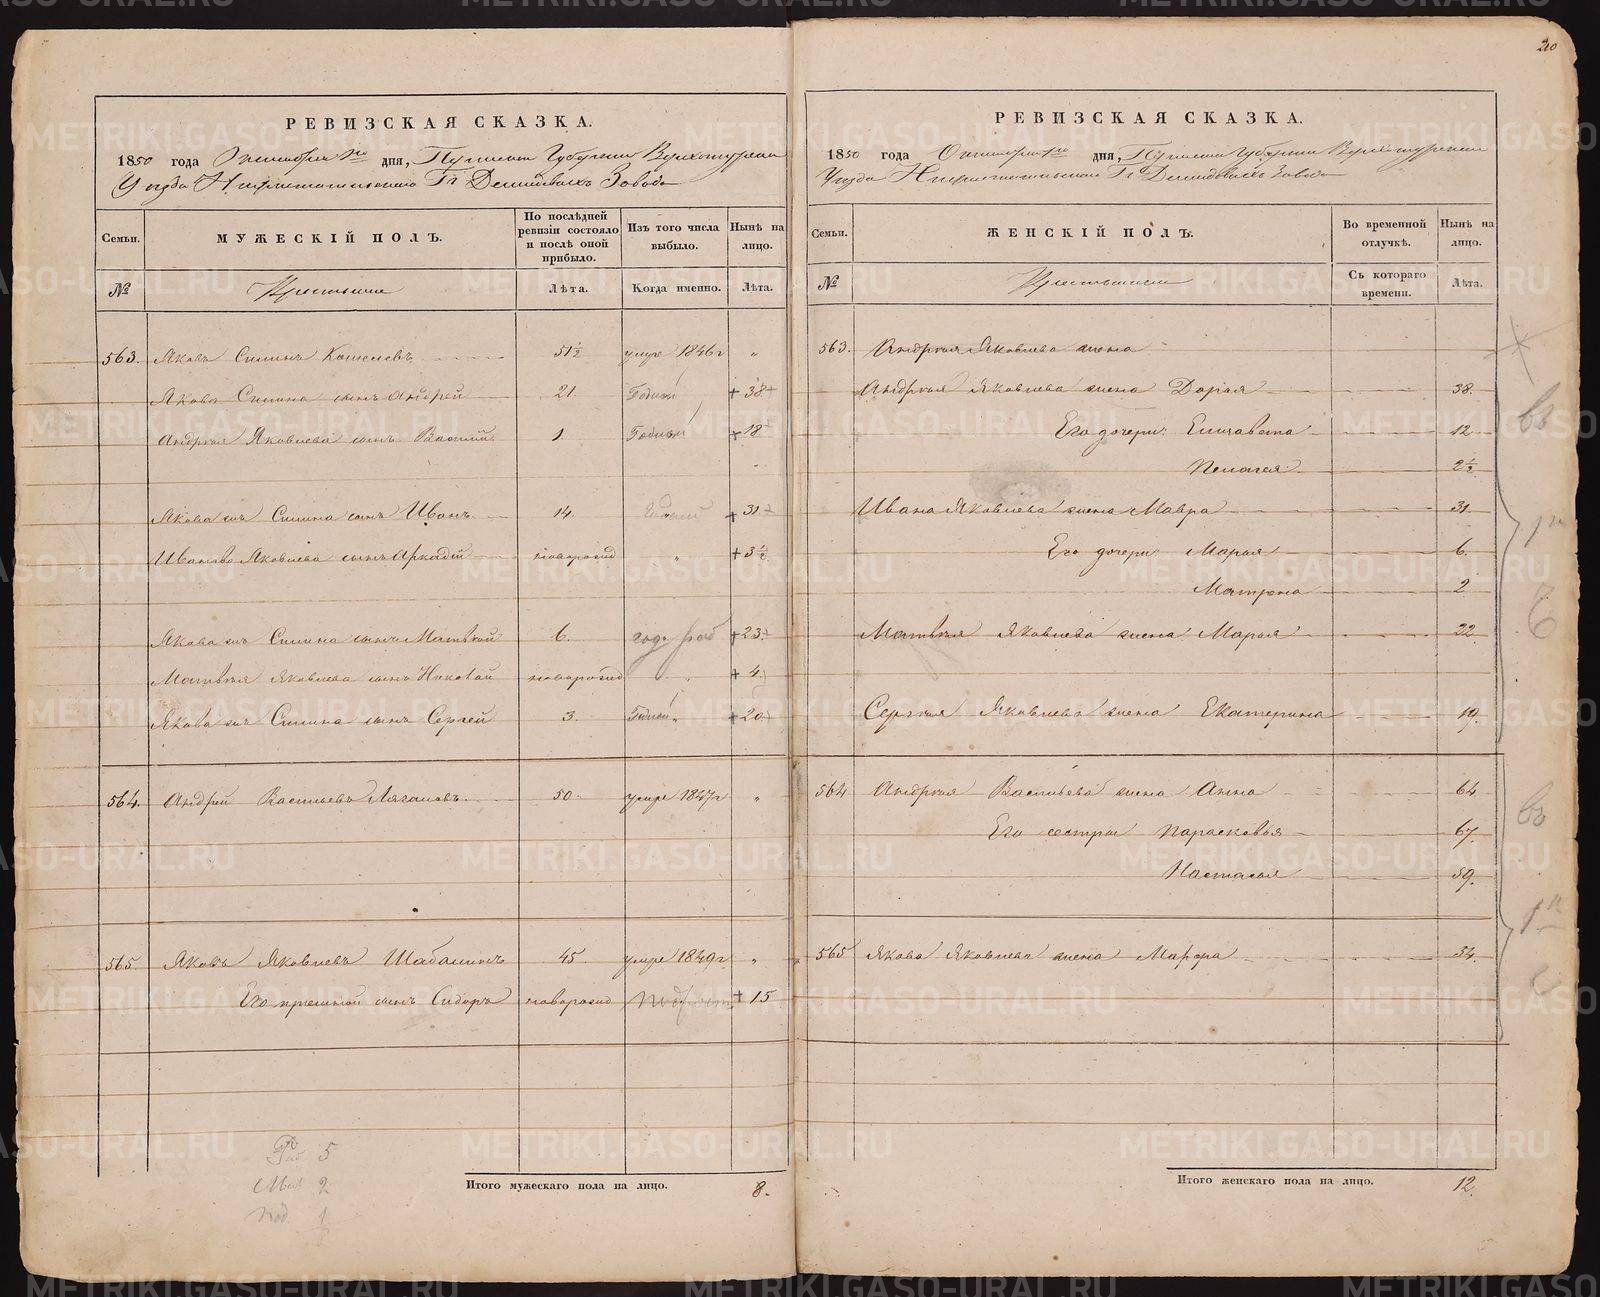 РЕВИЗСКАЯ СКАЗКА.
1850 года Октября 1го дня, Пермской Губернии Верхотурскаго
Уезда Нижнетагильскаго Гг Демидовыхъ Завода
Семьи.
МУЖЕСКІЙ ПОЛЪ.
По послѣдней ревизіи состояло и послѣ оной прибыло.
Изъ того числа выбыло.
Нынѣ на лицо.
№
Крестьяне
Лѣта.
Когда именно.
Лѣта.
563. Яковъ Силинъ 51½ умре 1846 г "
Якова Силина сынъ Андрей 21. Годный + 38 +
Андрея Яковлева сынъ Василий 1. Годный + 18
Якова же Силина сынъ Иванъ 14. Годный + 31 +
Иваново Яковлева сынъ Аркадій новорожд " + 3½
Якова же Силина сынъ Матвѣй 6. + 23 +
Матвѣя Яковлева сынъ Николай новорожд " + 4.
Якова же Силина сынъ Сергей 3. Годный + 20
564. Андрей Васильевъ 50. умре 1847 г "
565 Яковъ Яковлевъ Шабалинъ 45. умре 1849 г "
Его приемной сынъ Сидоръ новорожд + 15
5
2
1
Итого мужескаго пола на лицо. 8.
20
РЕВИЗСКАЯ СКАЗКА.
1850 года Октября 1го дня, Пермской Губернии Верхотурскаго
Уезда Нижнетагильскаго Гг Демидовыхъ Завода
Семьи.
ЖЕНСКІЙ ПОЛЪ.
Во временной отлучкѣ.
Нынѣ на лицо.
№
Крестьянки
Съ котораго времени.
Лѣта.
563. Андрея Яковлева жена
Андрея Яковлева жена Дарья 38.
Его дочери: Елизавета 12
Пелагея 2½
Ивана Яковлева жена Мавра 31
Его дочери Марья 6.
Матрена 2
Матвѣя Яковлева жена Марья 22.
Сергея Яковлева жена Екатерина 19.
564 Андрея Васильева жена Анна 64
Его сестры Парасковья 67.
Настасья 59.
565 Якова Яковлева жена Марфа 34.
Итого женскаго пола на лицо. 12.
METRIKI.GASO-URAL.RU